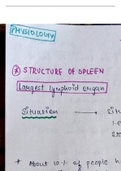 PHYSIOLOGY
* STRUCTURE OF SPLEEN
Largest lymphoid organ
Situation
* About 10% of people h